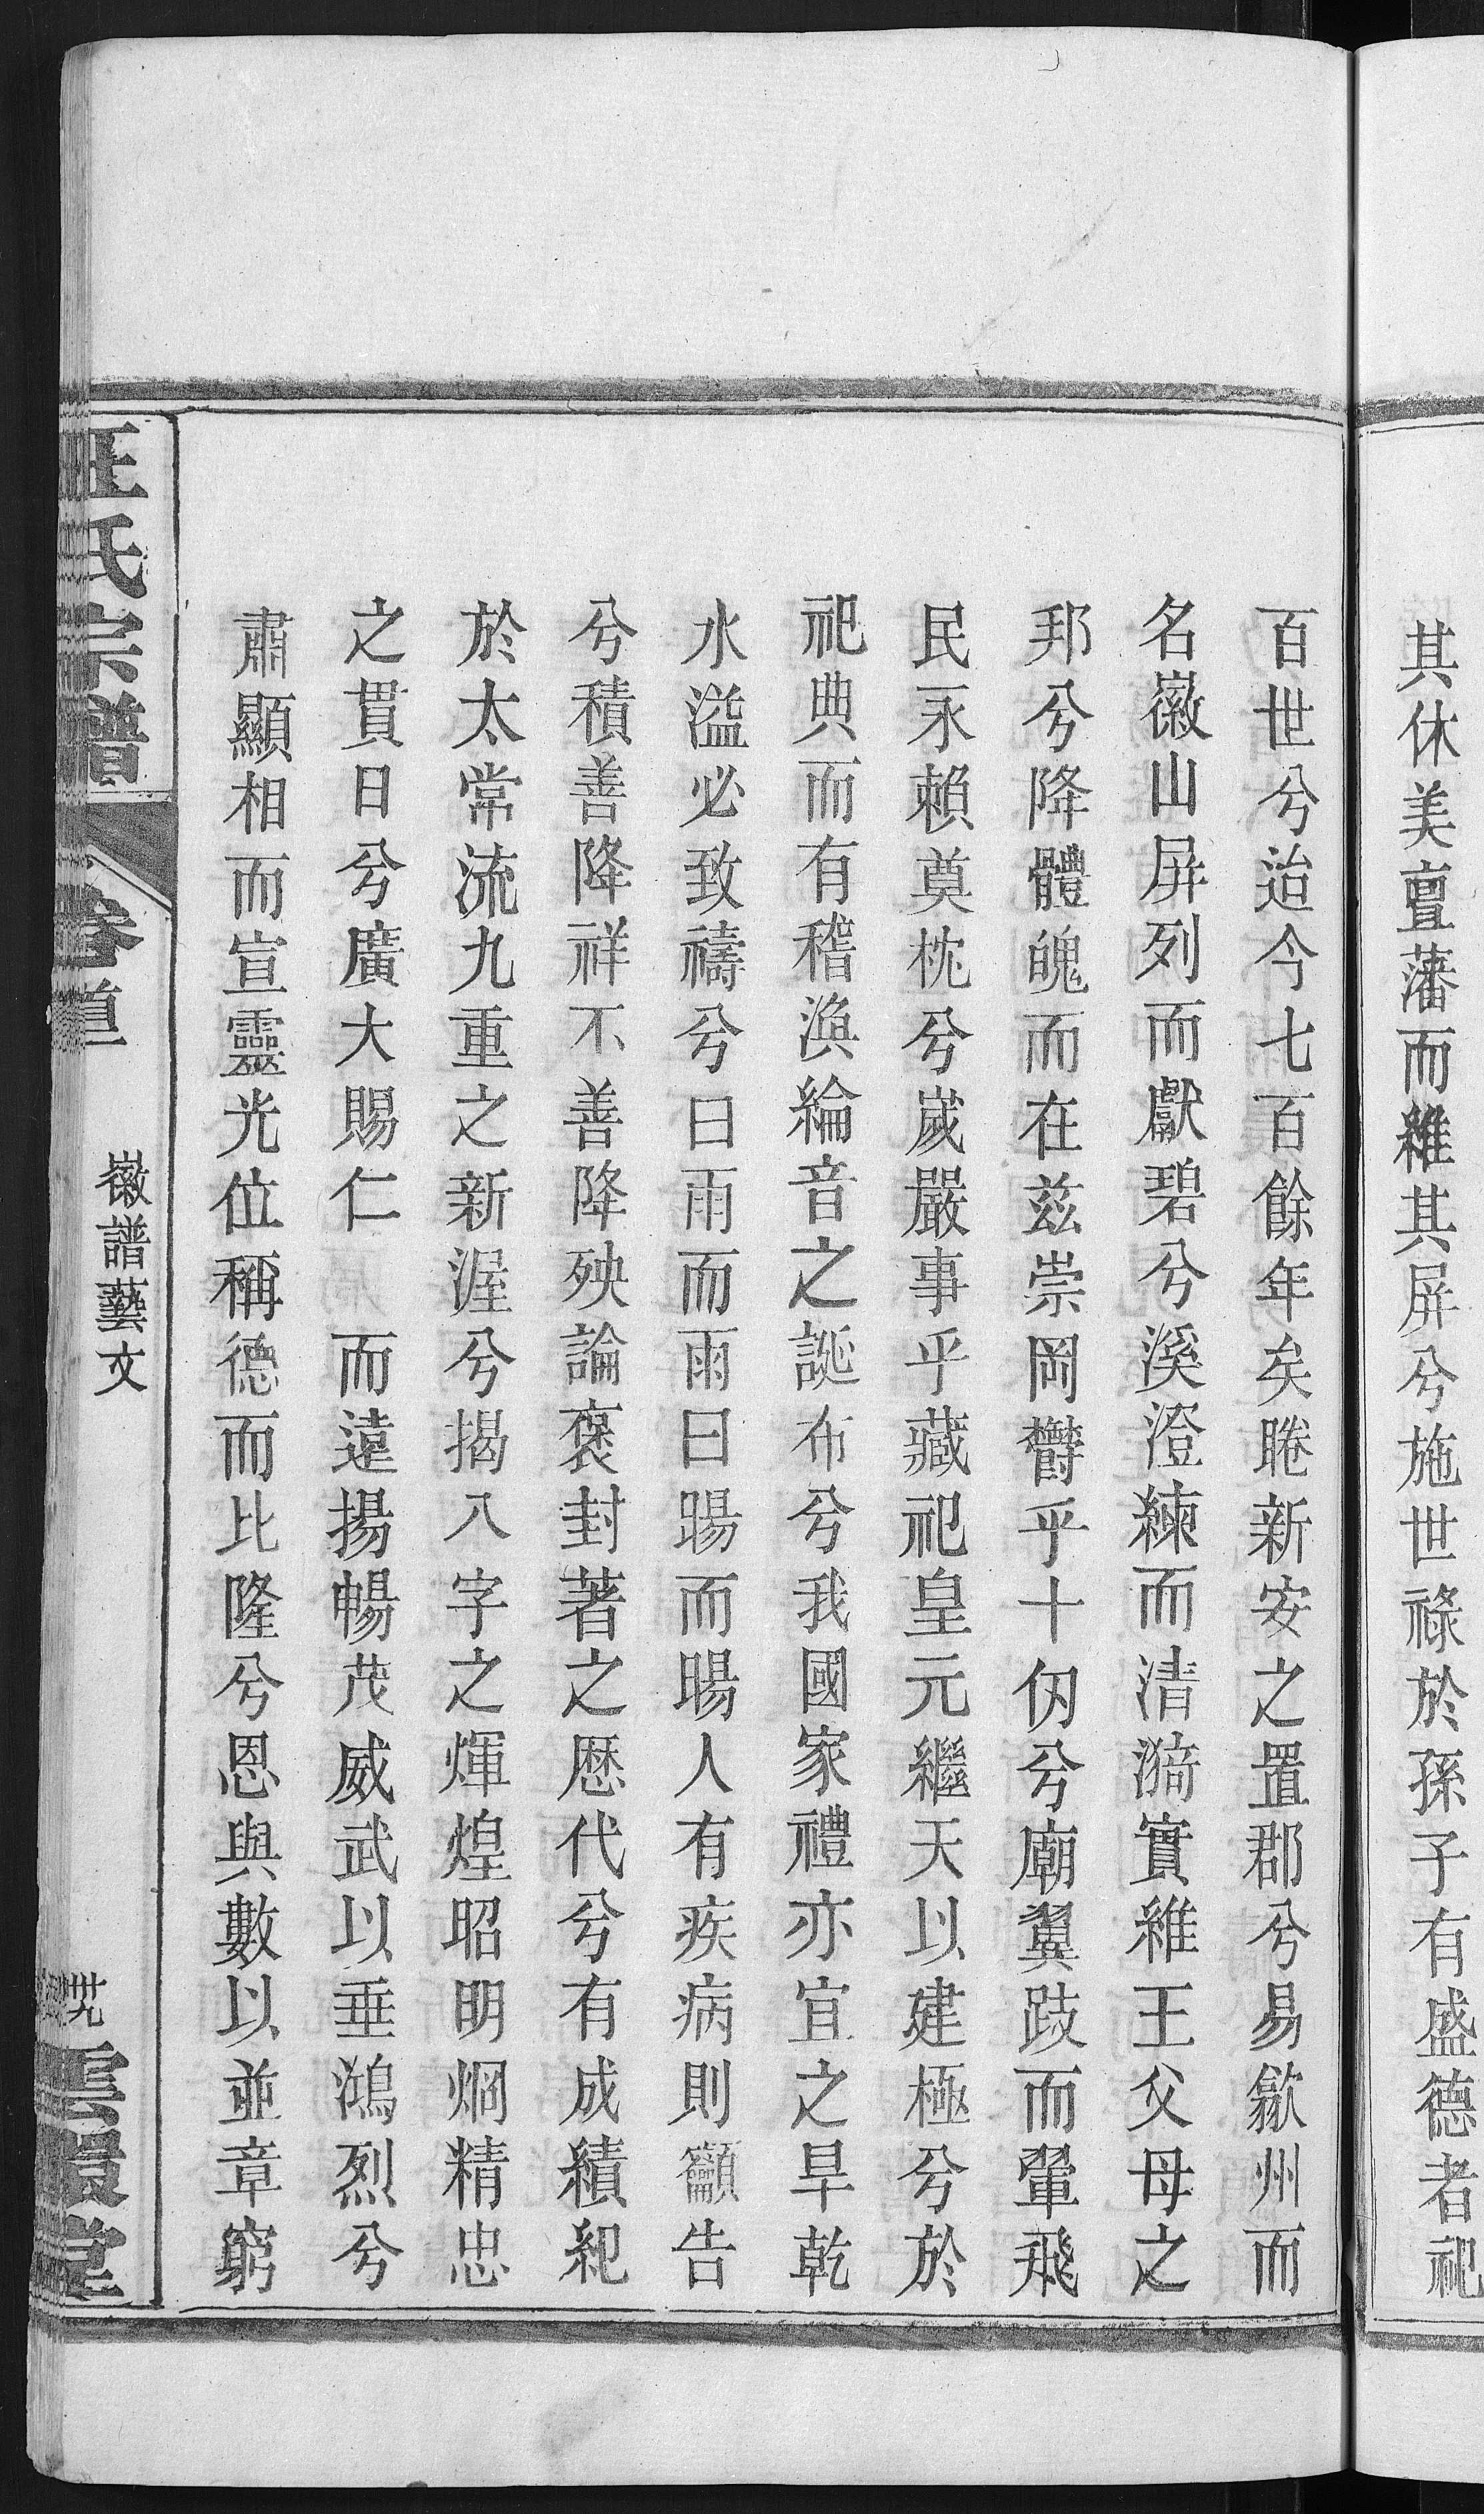 其休美亶藩而維其屏兮施世祿於孫子有盛德者祀
百世兮迨今七百餘年矣睠新安之置郡兮易歙州而
名徽山屏列而獻碧兮溪澄練而清漪實維王父母之
邦兮降體魄而在茲崇岡欝乎十仞兮廟翼跂而翬飛
民永賴奠枕兮嵗嚴事乎藏祀皇元繼天以建極兮於
祀典而有稽渙綸音之誕布兮我國家禮亦宜之旱乾
水溢必致禱兮曰雨而雨曰暘而暘人有疾病則籲告
兮積善降祥不善降殃論褒封著之歴代兮有成績紀
於太常流九重之新渥兮揭八字之煇煌昭明烱精忠
之貫日兮廣大賜仁　而遠揚暢茂威武以垂鴻烈兮
肅顯相而宣靈光位稱德而比隆兮恩與數以並章窮
汪氏宗譜
卷首
徽譜藝文
卅九
雲
堂